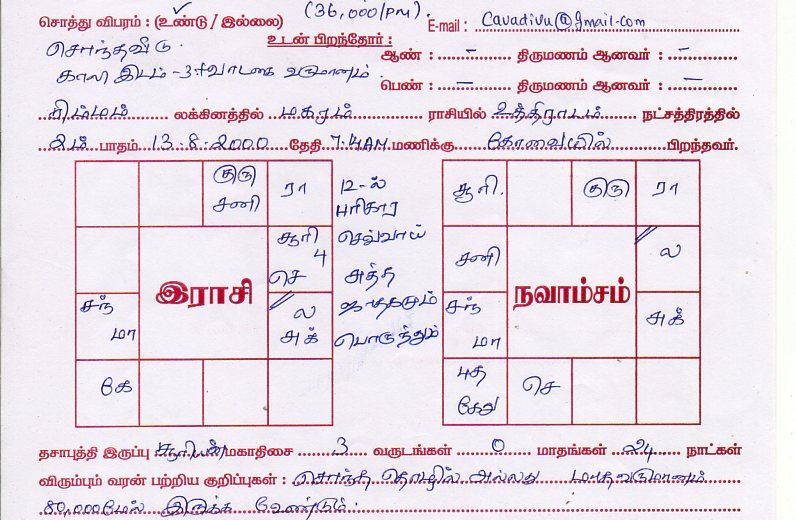 (36,000/PM).
சொத்து விபரம் : (உண்டு / இல்லை) E-mail : Cavadivu@gmail.com
சொந்தவீடு. உடன் பிறந்தோர் : ஆண் : – திருமணம் ஆனவர் : –
காலி இடம் -3, வாடகை வருமானம். பெண் : – திருமணம் ஆனவர் : –
சிம்மம் லக்கினத்தில் மகரம் ராசியில் உத்திராடம் நட்சத்திரத்தில்
2ம் பாதம் 13.8.2000 தேதி 7.14AM மணிக்கு கோவையில் பிறந்தவர்.
குரு சனி ரா 12-ல் சூரி. குரு ரா
பரிகார
சூரி 4 செ செவ்வாய் சனி ல
இராசி அத்த நவாம்சம்
சந் மா ல அக் ஜாதகமும் சந் மா அக்
பொருந்தும்
கே புத கேது செ
தசாபுத்தி இருப்பு : சூரியன் மகாதிசை 3 வருடங்கள் 0 மாதங்கள் 24 நாட்கள்
விரும்பும் வரன் பற்றிய குறிப்புகள் : சொந்த தொழில் அல்லது மாதவருமானம்
80,000மேல் இருக்க வேண்டும்.